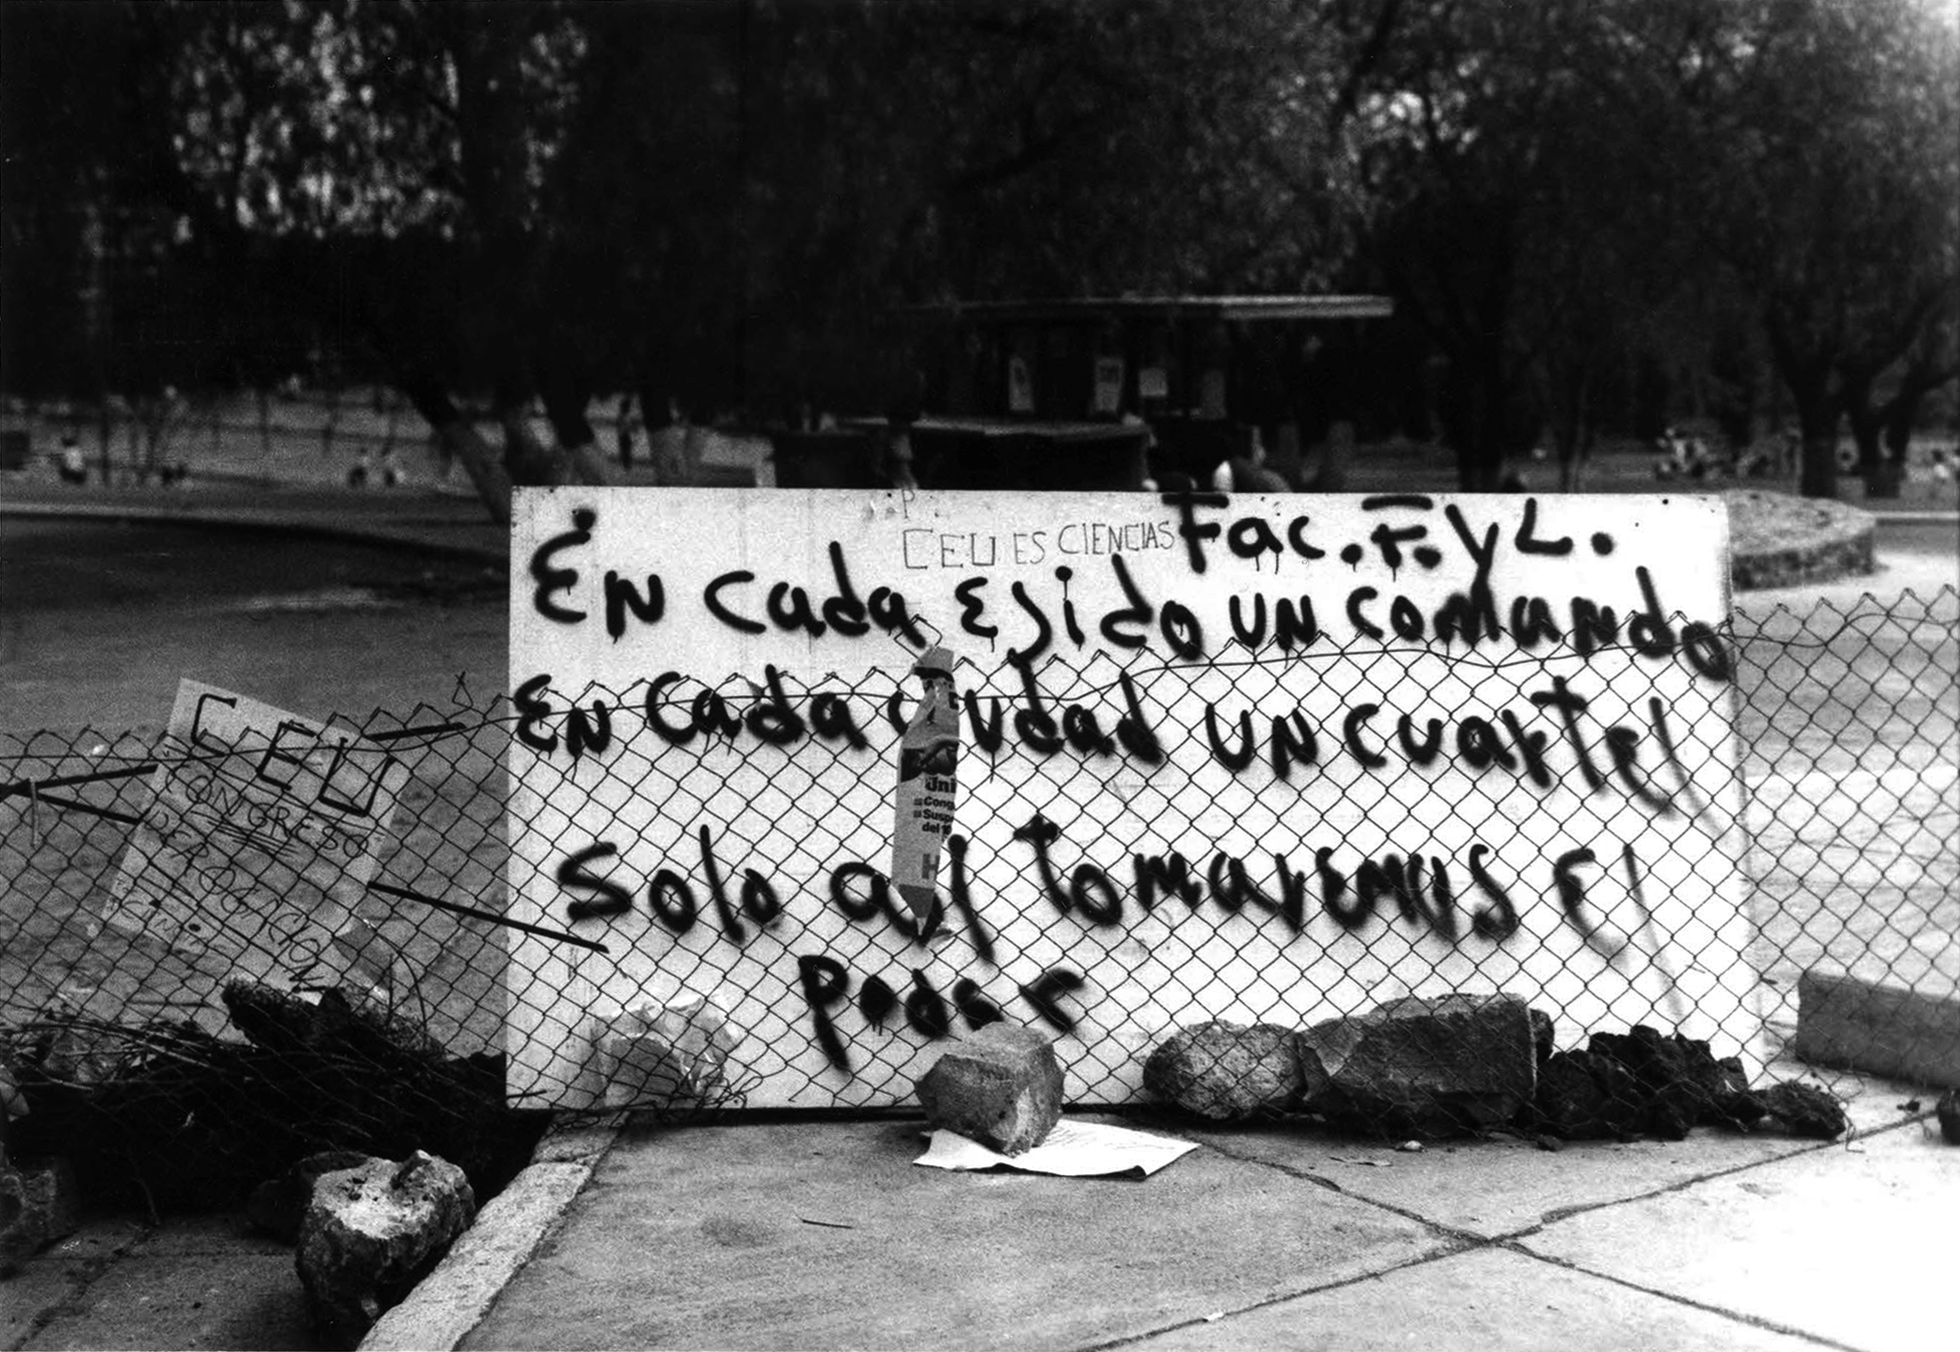 CEU ES CIENCIAS
Fac. F. y L.
En cada Ejido un comando
En cada ciudad un cuartel
Solo así tomaremos El
poder
CEU
CONGRESO
DEROGACION
Uni
Cong
Susp
del
H